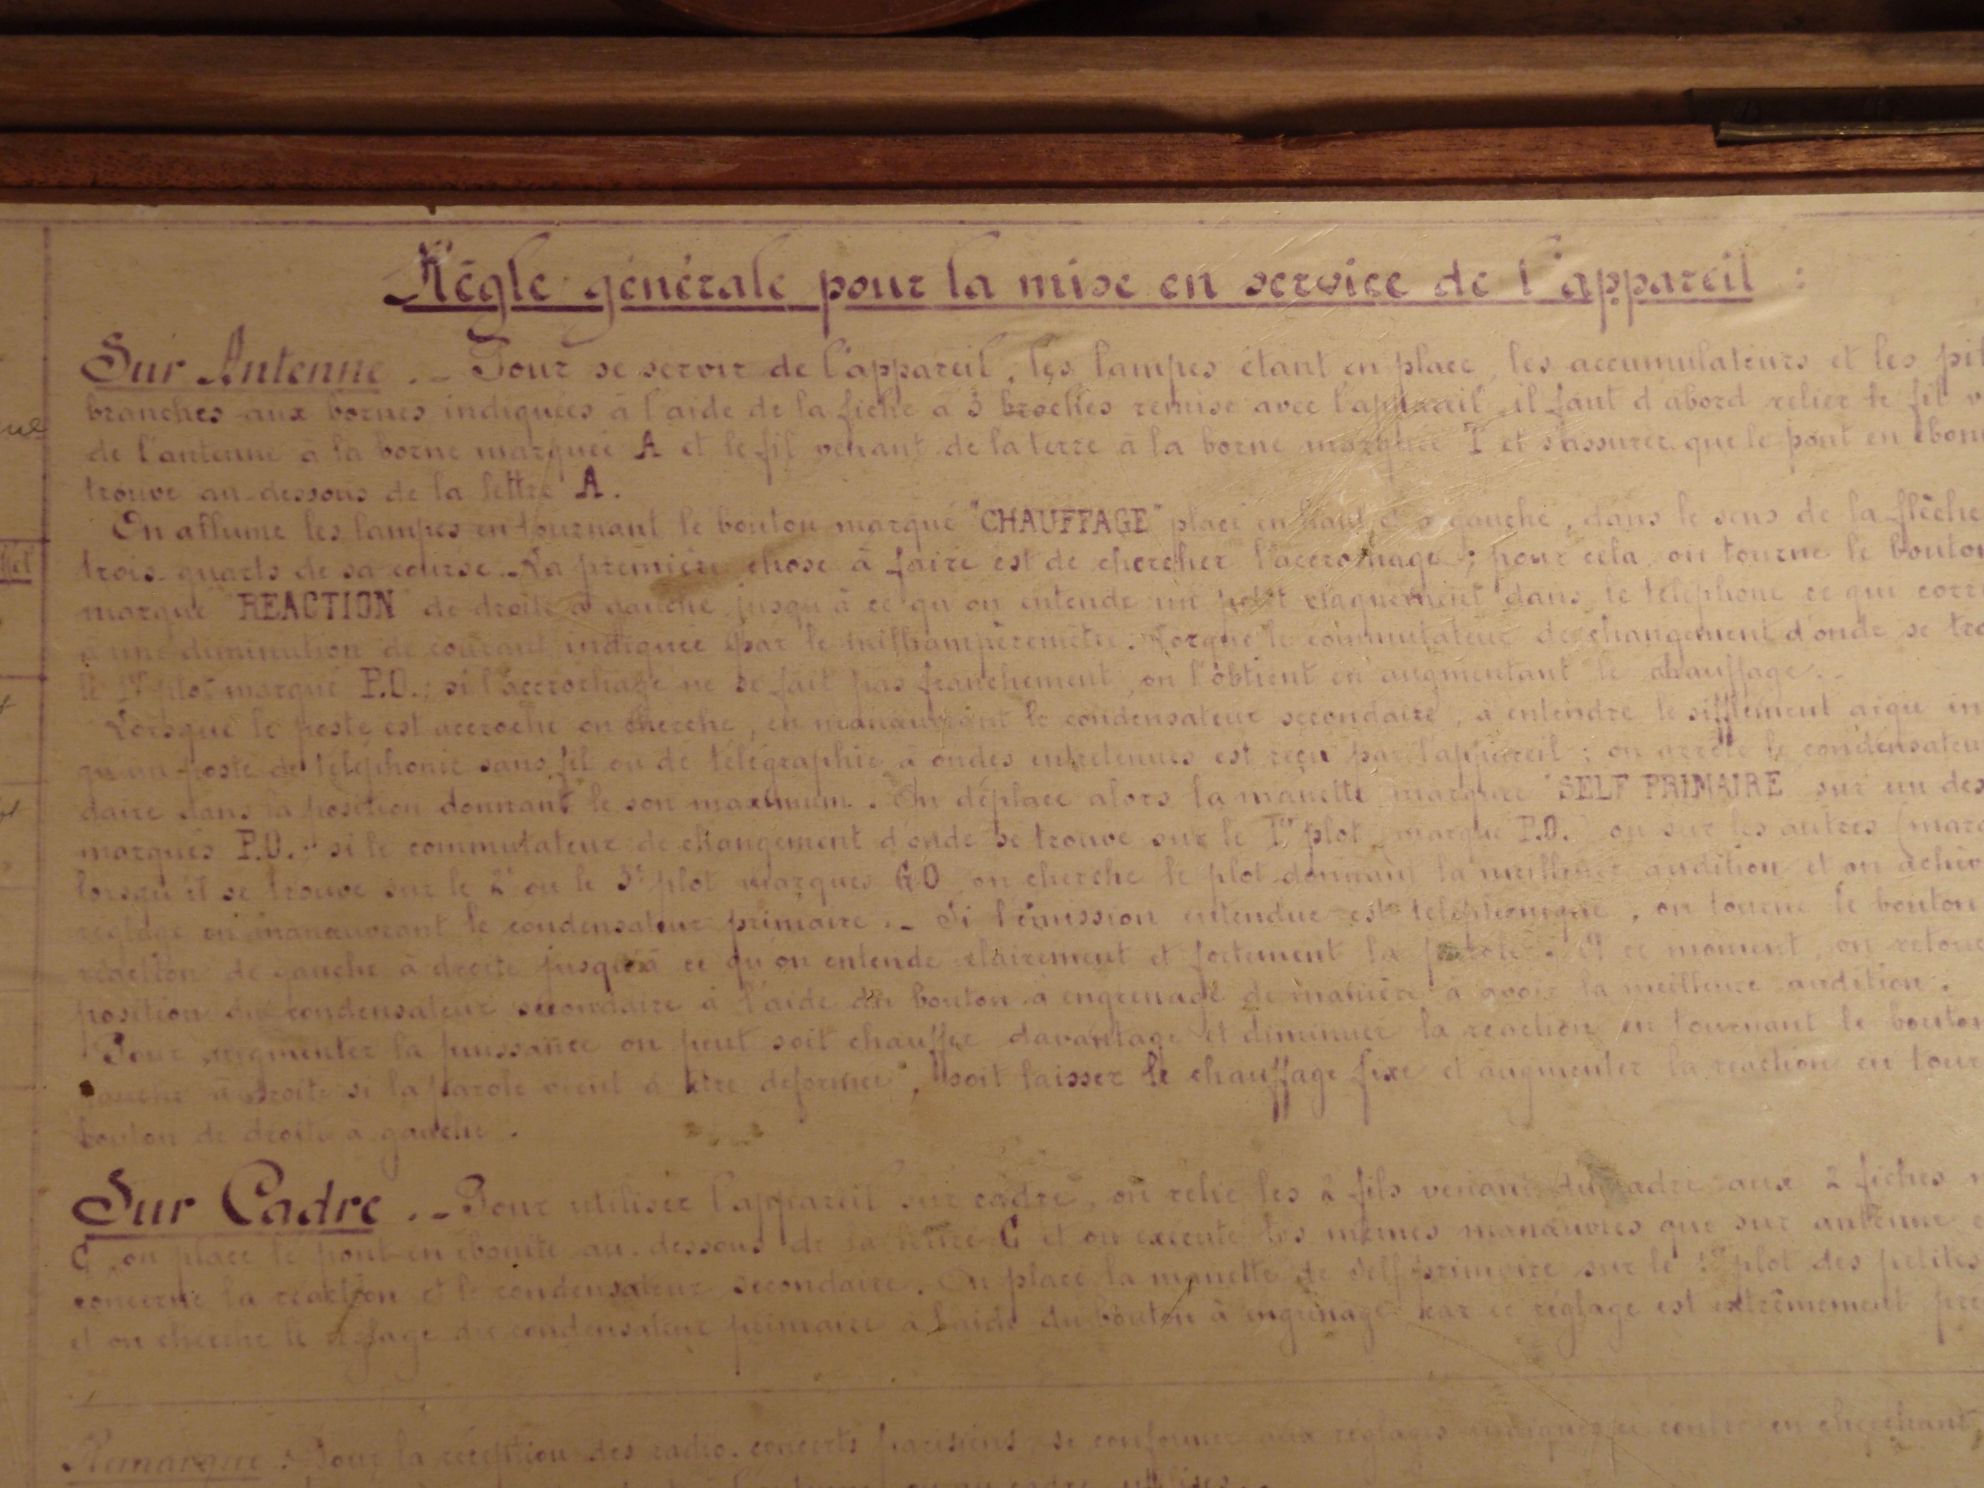 Règle générale pour la mise en service de l'appareil :
Sur Antenne . - Pour se servir de l'appareil, les lampes étant en place, les accumulateurs et les pil
branchés aux bornes indiquées à l'aide de la fiche à 3 broches remise avec l'appareil, il faut d'abord relier le fil v
de l'antenne à la borne marquée A et le fil venant de la terre à la borne marquée T et s'assurer que le pont en ébon
trouve au-dessous de la lettre A.
On allume les lampes en tournant le bouton marqué "CHAUFFAGE" placé en haut et à gauche, dans le sens de la flèche
trois quarts de sa course. La première chose à faire est de chercher l'accrochage ; pour cela on tourne le bouton
marqué "REACTION" de droite à gauche jusqu'à ce qu'on entende un petit claquement dans le téléphone ce qui corr
à une diminution de courant indiquée par le milliampèremètre. Lorsque le commutateur de changement d'onde se tro
le 1er plot marqué P.O.; si l'accrochage ne se fait pas franchement, on l'obtient en augmentant le chauffage.
Lorsque le poste est accroché on cherche, en manœuvrant le condensateur secondaire, à entendre le sifflement aigu in
qu'un poste de téléphonie sans fil ou de télégraphie à ondes entretenues est reçu par l'appareil ; on arrête le condensateu
daire dans la position donnant le son maximum. On déplace alors la manette marquée "SELF PRIMAIRE" sur un des
marqués P.O.; si le commutateur de changement d'onde se trouve sur le 1er plot marqué P.O. ou sur les autres (marq
lorsqu'il se trouve sur le 2e ou le 3e plot marqués G.O. on cherche le plot donnant la meilleure audition et on achèv
réglage en manœuvrant le condensateur primaire. - Si l'émission entendue est téléphonique, on tourne le bouton
réaction de gauche à droite jusqu'à ce qu'on entende clairement et fortement la parole. A ce moment, on retou
position du condensateur secondaire à l'aide du bouton à engrenage de manière à avoir la meilleure audition.
Pour augmenter la puissance on peut soit chauffer davantage et diminuer la réaction en tournant le bouton
gauche à droite si la parole vient à être déformée, soit laisser le chauffage fixe et augmenter la réaction en tour
bouton de droite à gauche.
Sur Cadre . - Pour utiliser l'appareil sur cadre, on relie les 2 fils venant du cadre aux 2 fiches
C, on place le pont en ébonite au-dessous de la lettre C et on exécute les mêmes manœuvres que sur antenne
concerne la réaction et le condensateur secondaire. On place la manette de self primaire sur le 1er plot des petites
et on cherche le réglage du condensateur primaire à l'aide du bouton à engrenage car ce réglage est extrêmement pré
Remarque : Pour la réception des radio-concerts parisiens, se conformer aux réglages indiqués ci-contre en cherchant